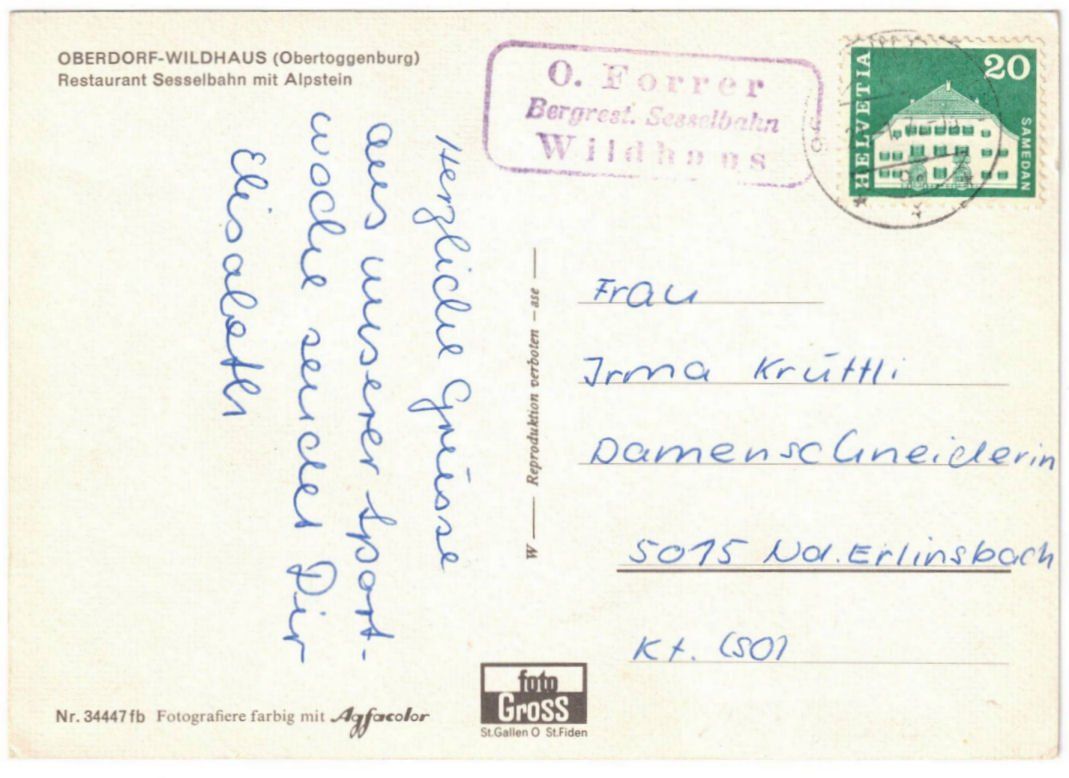 OBERDORF-WILDHAUS (Obertoggenburg)
Restaurant Sesselbahn mit Alpstein
O. Forrer
Bergrest. Sesselbahn
Wildhaus
HELVETIA
20
SAMEDAN
Herzliche Grüsse
aus unserer Sport-
woche sendet Dir
Elisabeth
W — Reproduktion verboten – ase —
Frau
Irma Krüttli
Damenschneiderin
5015 Nd. Erlinsbach
Kt. (SO)
Nr. 34447fb Fotografiere farbig mit Agfacolor
foto
Gross
St.Gallen O St.Fiden